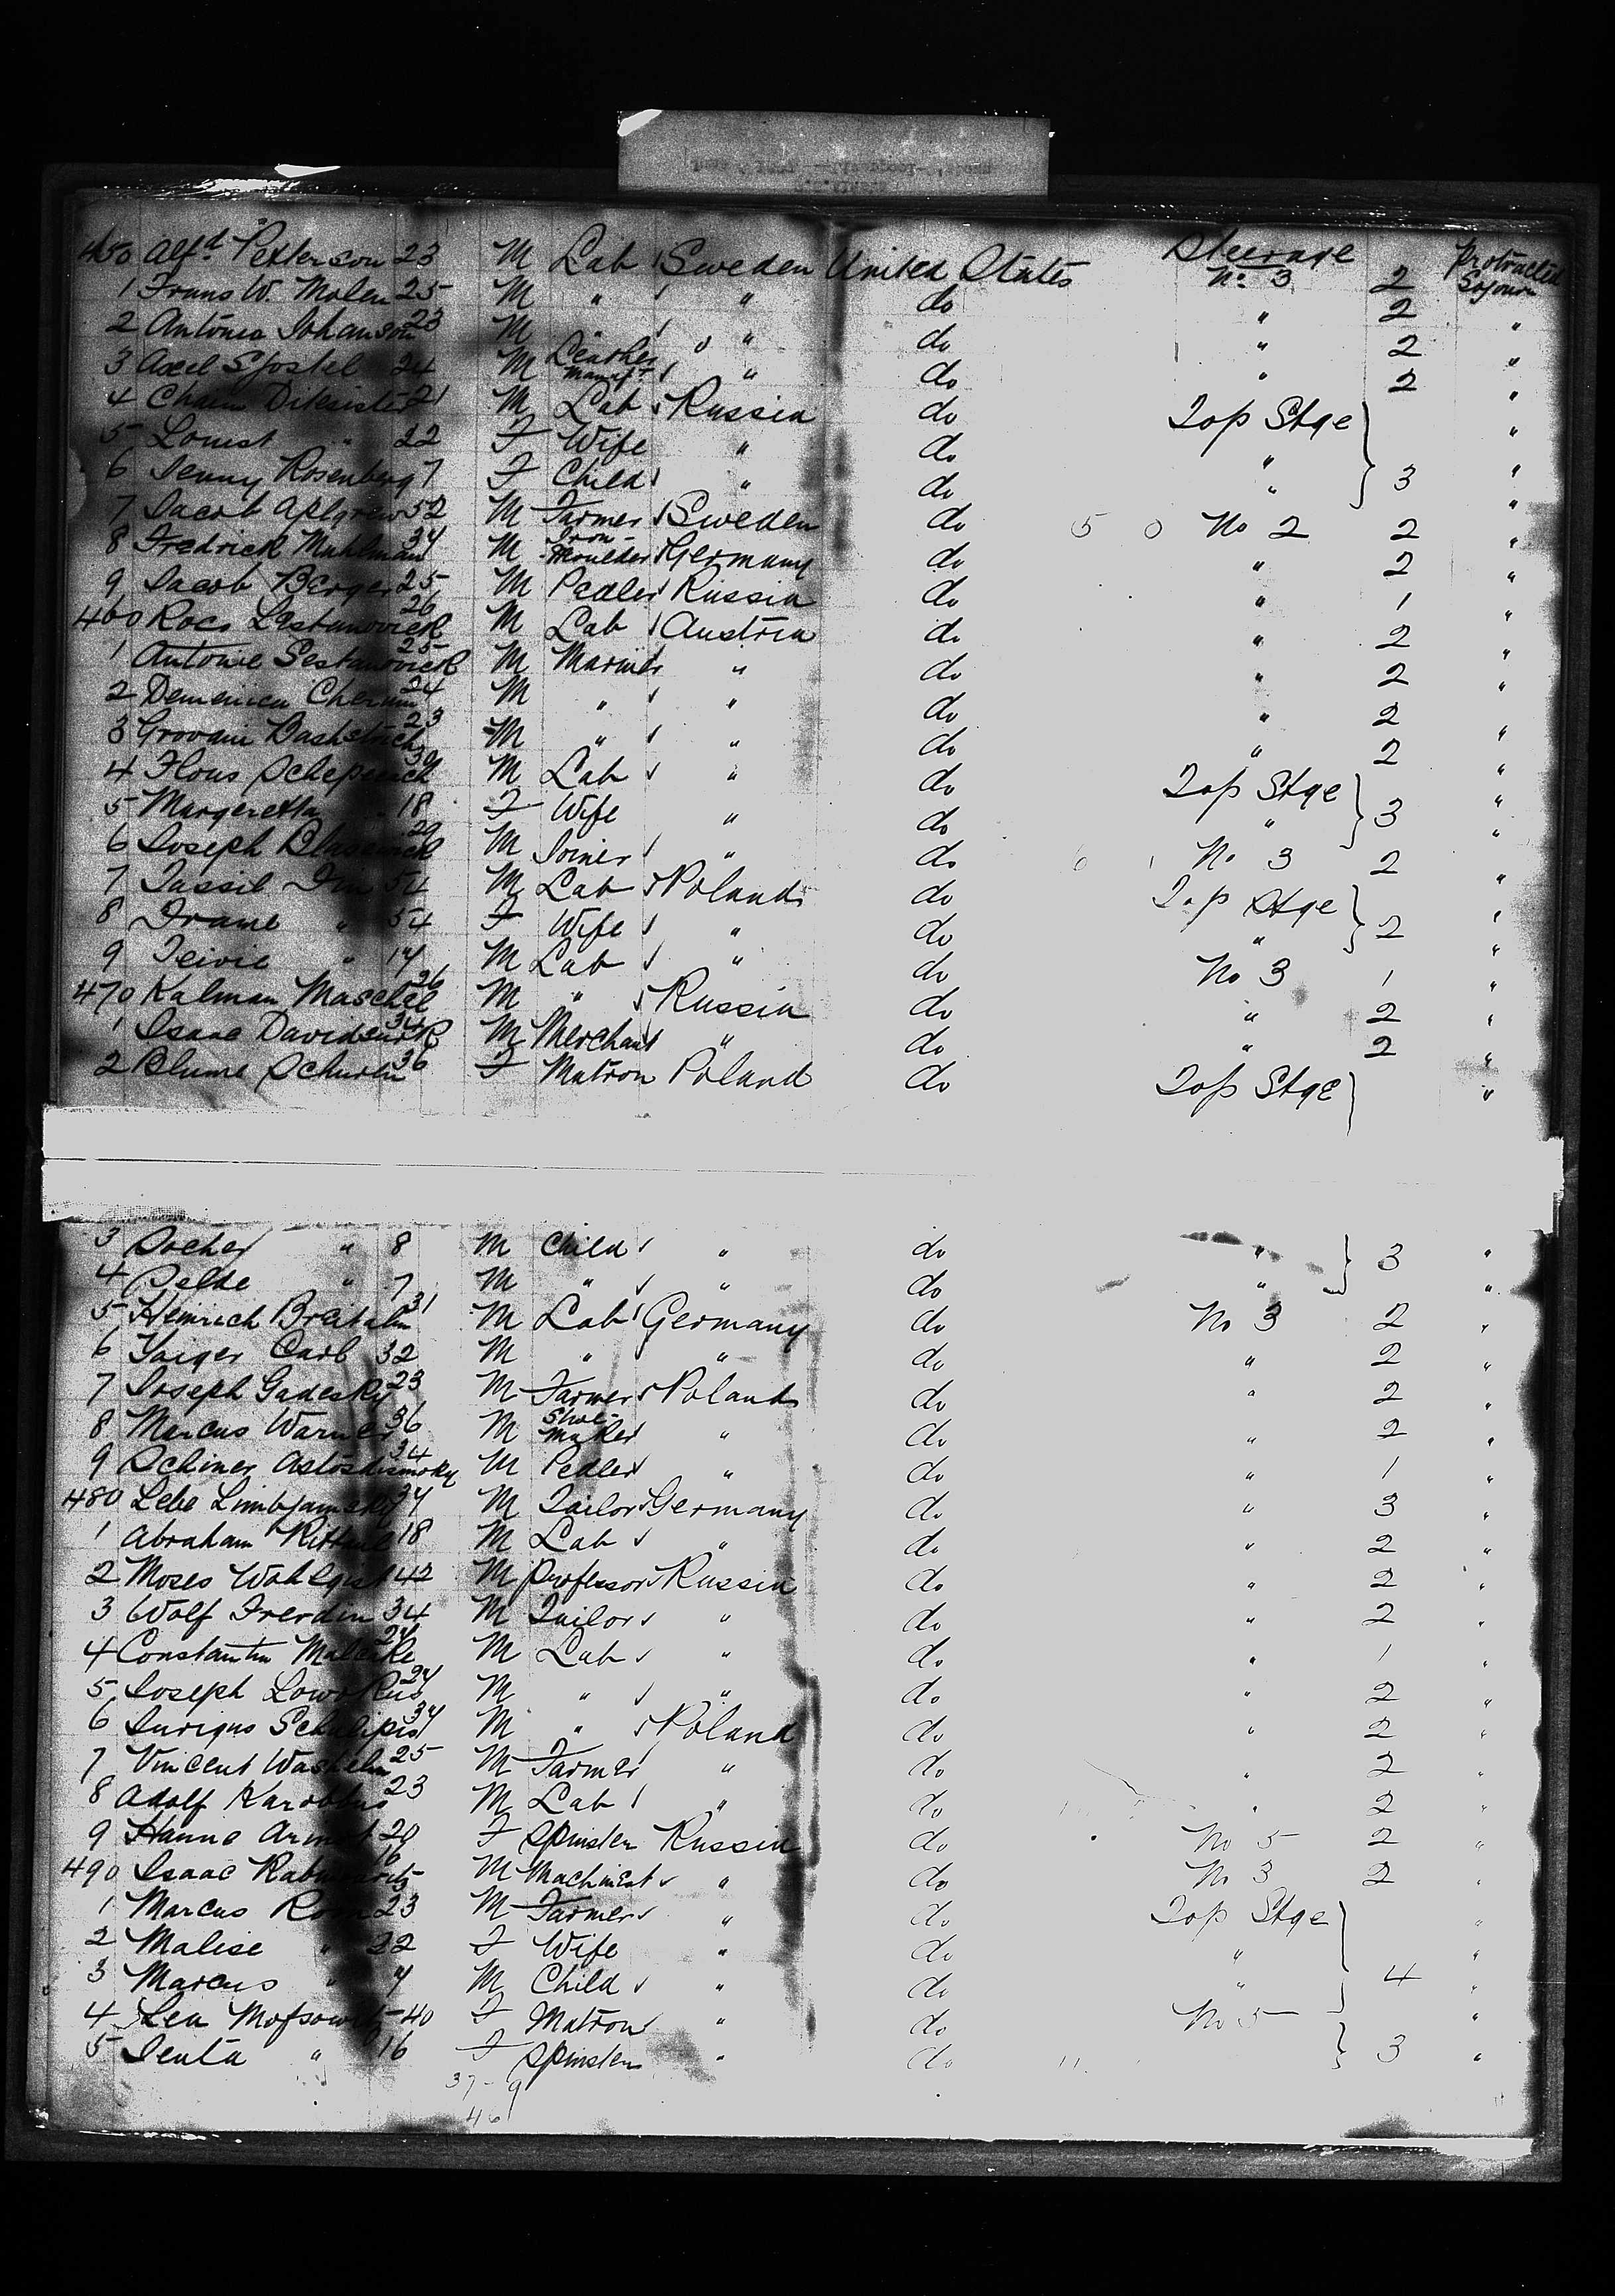 Steerage Protracted
450 Alfd Petterson 23 M Lab Sweden United States No 3 2 Sojourn
1 Frans W. Molen 25 M " " do " 2 "
2 Antonia Johanson 23 M " " do " 2 "
3 Axel Sjostel 24 M Leather Manuft " do " 2 "
4 Chaim 21 M Lab Russia do Top Stge "
5 Louest " 22 F Wife " do " "
6 Jenny Rosenberg 7 F Child " do " 3 "
7 Jacob Aplgrew 52 M Farmer Sweden do 5 0 No 2 2 "
8 Fredrick Muhlman 34 M Iron-Moulder Germany do " 2 "
9 Jacob Berger 25 M Pedler Russia do " 1 "
460 Rocs 26 M Lab Austria do " 2 "
1 Antonie Sestanovick 25 M Marine " do " 2 "
2 Demenica 24 M " " do " 2 "
3 Grovani 23 M " " do " 2 "
4 Flous 30 M Lab " do Top Stge "
5 Margeretta 18 F Wife " do " 3 "
6 Joseph 29 M Joiner " do 6 1 No 3 2 "
7 Tassil 54 M Lab Poland do Top Stge "
8 Frame " 54 F Wife " do " 2 "
9 Teivie " 17 M Lab " do No 3 1 "
470 Kalman Maschal 26 M " Russia do " 2 "
1 Isaac 34 M Merchant " do " 2 "
2 Blume Schurlin 36 F Matron Poland do Top Stge "
3 Socher " 8 M Child " do " 3 "
4 Selde " 7 M " " do " "
5 Heinrich 31 M Lab Germany do No 3 2 "
6 Yaiger Carl 32 M " " do " 2 "
7 Joseph Gadesky 23 M Farmer Poland do " 2 "
8 Marcus Warner 36 M Shoe-maker " do " 2 "
9 Schiner 34 M Pedler " do " 1 "
480 Lebe 34 M Tailor Germany do " 3 "
1 Abraham 18 M Lab " do " 2 "
2 Moses Wahlqist 42 M Professor Russia do " 2 "
3 Wolf Frerdin 34 M Tailor " do " 2 "
4 Constantin 24 M Lab " do " 1 "
5 Joseph 24 M " " do " 2 "
6 34 M " Poland do " 2 "
7 Vincent 25 M Farmer " do " 2 "
8 Adolf 23 M Lab " do " 2 "
9 Hanne 20 F Spinster Russia do No 5 2 "
490 Isaac 16 M Machinest " do No 3 2 "
1 Marcus 23 M Farmer " do Top Stge "
2 Malise " 22 F Wife " do " "
3 Marcus " 4 M Child " do " 4 "
4 Lea 40 F Matron " do No 5 "
5 Jenta " 16 F Spinster " do 3 "
37-9
46